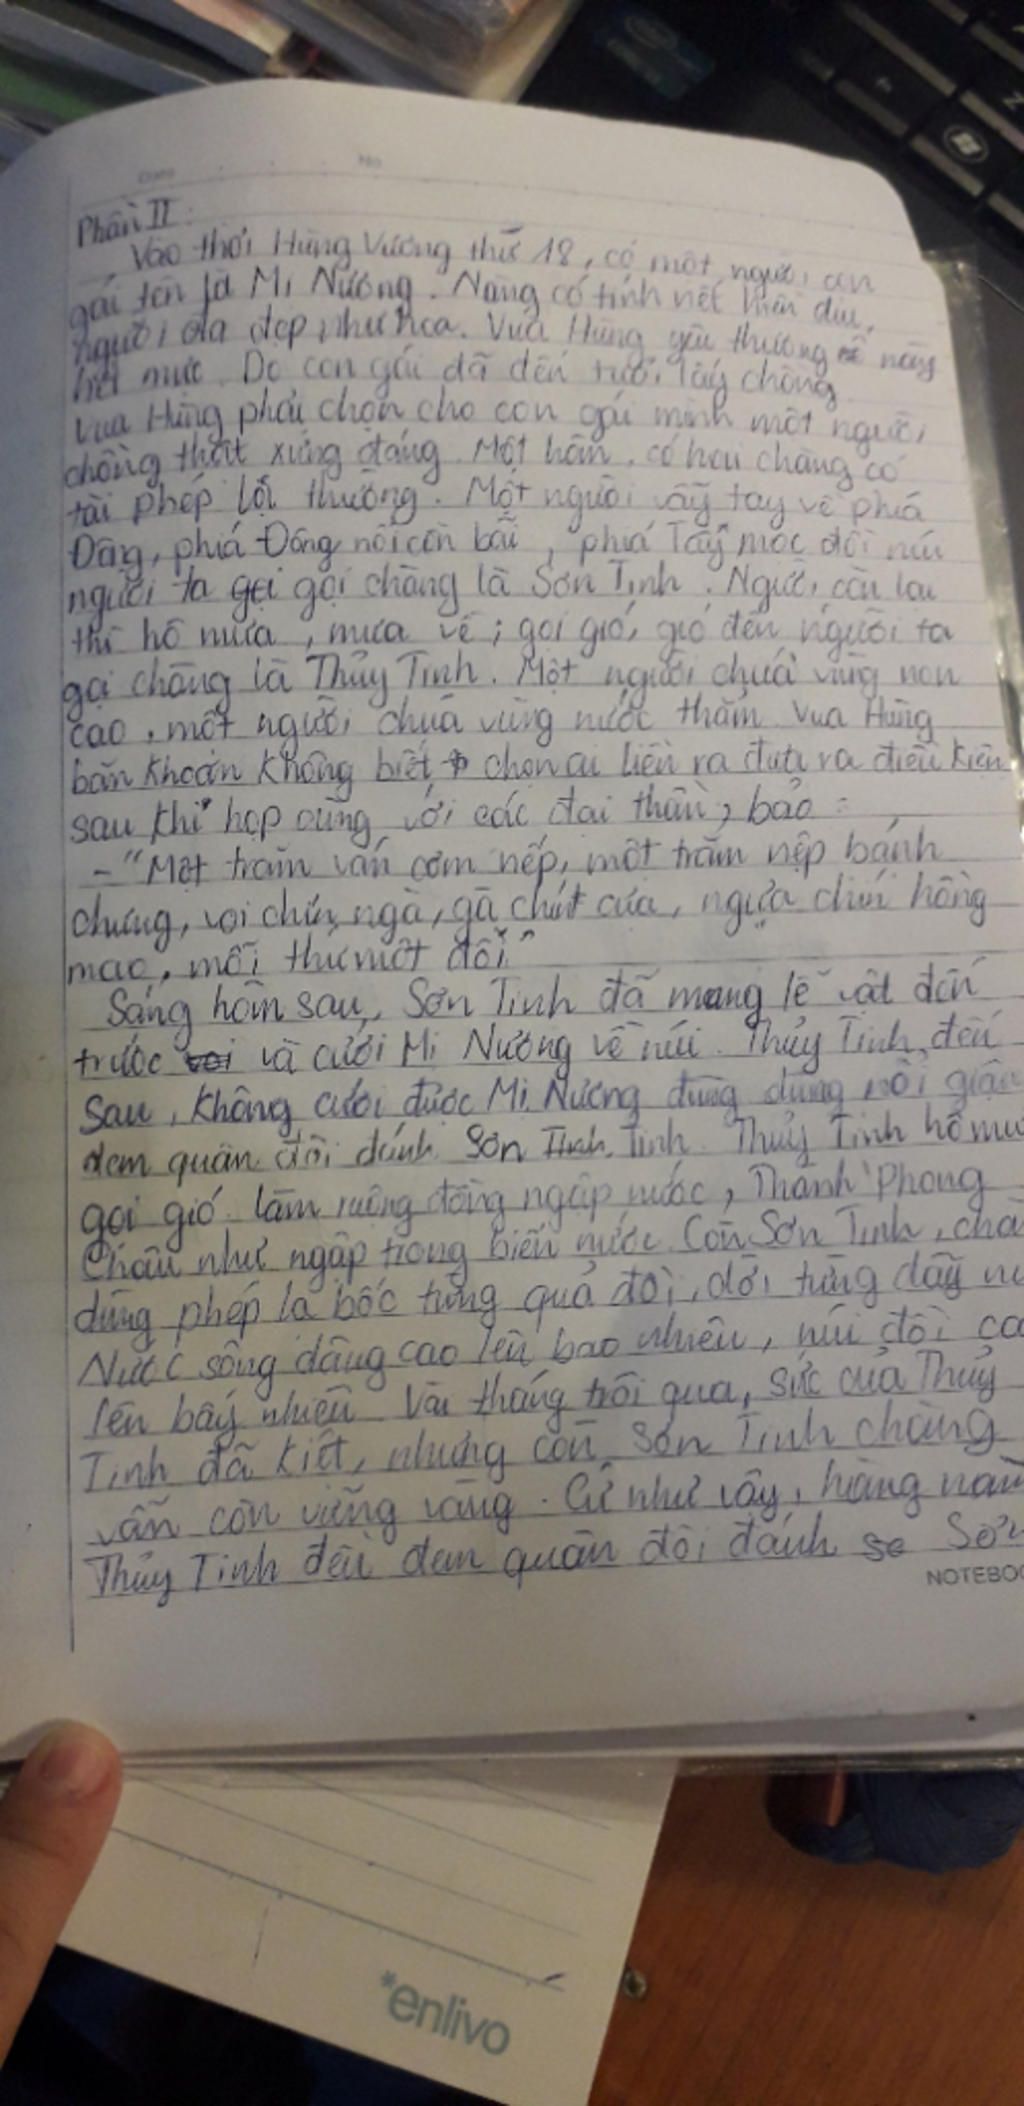 Date No
Phần II:
Vào thời Hùng Vương thứ 18, có một người con
gái tên là Mị Nương. Nàng có tính nết hiền dịu,
người đẹp như hoa. Vua Hùng yêu thương nàng
hết mực. Do con gái đã đến tuổi lấy chồng
Vua Hùng phải chọn cho con gái mình một người
chồng thật xứng đáng. Một hôm, có hai chàng có
tài phép lạ thường. Một người vẫy tay về phía
Đông, phía Đông nổi cồn bãi, phía Tây mọc đồi núi
người ta gọi gọi chàng là Sơn Tinh. Người còn lại
thì hô mưa, mưa về; gọi gió, gió đến người ta
gọi chàng là Thủy Tinh. Một người chúa vùng non
cao, một người chúa vùng nước thẳm. Vua Hùng
băn khoăn không biết chọn ai liền ra đưa ra điều kiện
sau khi họp cùng với các đại thần, bảo:
- "Một trăm ván cơm nếp, một trăm nệp bánh
chưng, voi chín ngà, gà chín cựa, ngựa chín hồng
mao, mỗi thứ một đôi."
Sáng hôm sau, Sơn Tinh đã mang lễ vật đến
trước và cưới Mị Nương về núi. Thủy Tinh đến
sau, không cưới được Mị Nương đùng đùng nổi giận
đem quân đội đánh Sơn Tinh. Thủy Tinh hô mư
gọi gió làm ruộng đồng ngập nước, Thành Phong
Châu như ngập trong biển nước. Còn Sơn Tinh, chà
dùng phép lạ bốc từng quả đồi, dời từng dãy nú
Nước sông dâng cao lên bao nhiêu, núi đồi ca
lên bấy nhiêu. Vài tháng trôi qua, sức của Thủy
Tinh đã kiệt, nhưng còn Sơn Tinh chàng
vẫn còn vững vàng. Cứ như vậy, hàng năm
Thủy Tinh đều đem quân đội đánh Sơn
NOTEBOO
*enlivo